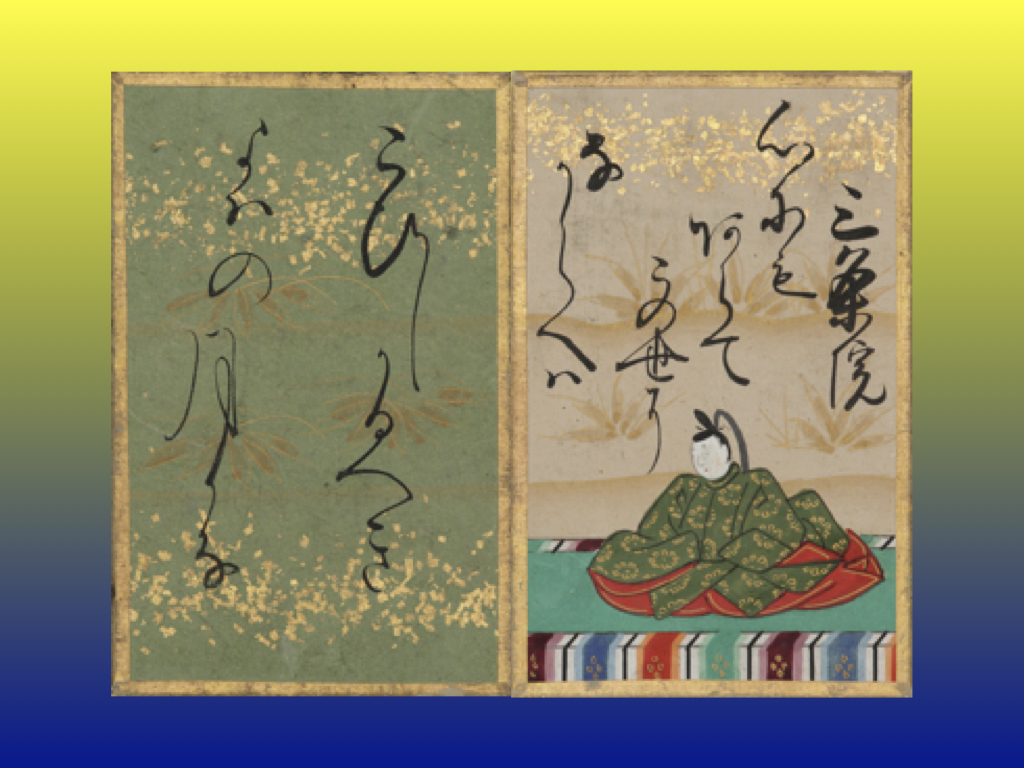 三条院
心にも
あらて
この世に
なからへハ
こひしかるへき
よハの月かな